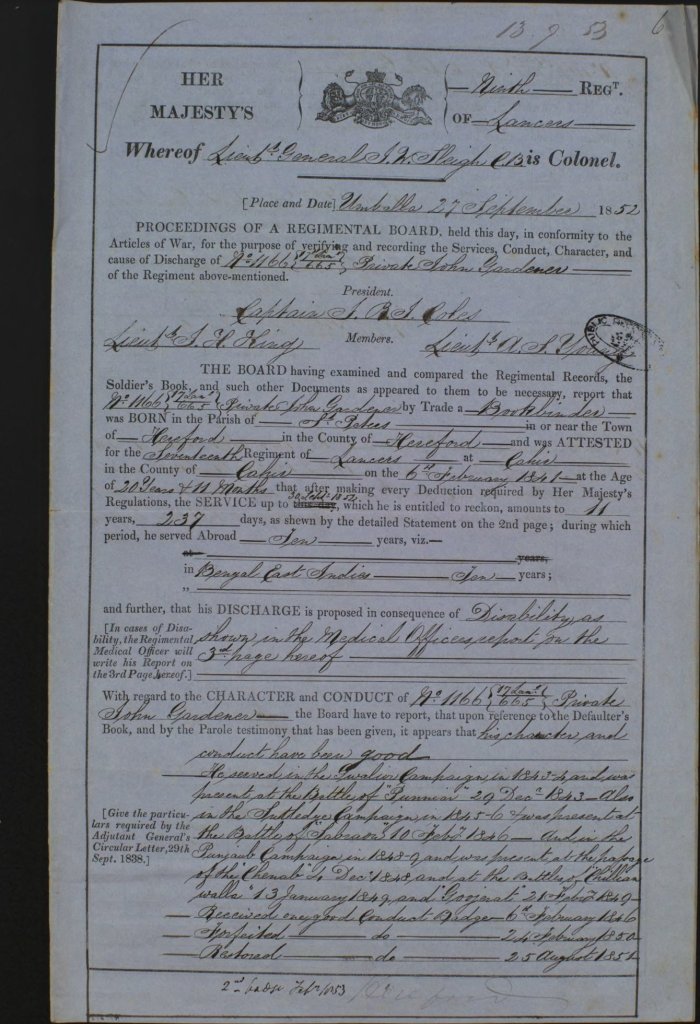 13 9 53
6
HER
MAJESTY'S
Ninth REGT.
OF Lancers
Whereof Lieut. General J. W. Sleigh CB is Colonel.
[Place and Date] Umballa 27 September 1852
PROCEEDINGS OF A REGIMENTAL BOARD, held this day, in conformity to the
Articles of War, for the purpose of verifying and recording the Services, Conduct, Character, and
cause of Discharge of No. 1166 {17 Lanrs / 665} Private John Gardener
of the Regiment above-mentioned.
President.
Captain J. B. J. Coles
Lieut. J. H. King Members. Lieut. A. S. Young
PUBLIC
THE BOARD having examined and compared the Regimental Records, the
Soldier's Book, and such other Documents as appeared to them to be necessary, report that
No. 1166 {17 Lanrs / 665} Private John Gardener by Trade a Bookbinder
was BORN in the Parish of St. Peters in or near the Town
of Hereford in the County of Hereford and was ATTESTED
for the Seventeenth Regiment of Lancers at Cahir
in the County of Cahir on the 6th February 1841 at the Age
of 20 Years & 11 Months that after making every Deduction required by Her Majesty's
30 Sept. 1852
Regulations, the SERVICE up to this day, which he is entitled to reckon, amounts to 11
years, 237 days, as shewn by the detailed Statement on the 2nd page; during which
period, he served Abroad Ten years, viz.
at years,
in Bengal East Indies Ten years;
"
and further, that his DISCHARGE is proposed in consequence of Disability, as
[In cases of Disability, the Regimental Medical Officer will write his Report on the 3rd Page hereof.]
shown in the Medical Officers report on the
3rd page hereof
With regard to the CHARACTER and CONDUCT of No. 1166 {17 Lanrs / 665} Private
John Gardener the Board have to report, that upon reference to the Defaulter's
Book, and by the Parole testimony that has been given, it appears that his character and
conduct have been good
[Give the particulars required by the Adjutant General's Circular Letter, 29th Sept. 1838.]
He served in the Gwalior Campaign in 1843-4 and was
present at the Battle of "Punniar" 29 Decr. 1843 Also
in the Sutledge Campaign in 1845-6 & was present at
the Battle of "Sobraon" 10 Feby. 1846 And in the
Punjaub Campaign in 1848-9 and was present at the passage
of the "Chenab" 4 Decr 1848 and at the Battles of "Chillian
walla" 13 January 1849 and "Goojerat" 21 Feby. 1849
Received one good Conduct Badge 6th February 1846
Forfeited do 24 February 1850
Restored do 25 August 1851
2nd badge Feby 1853
Hereford